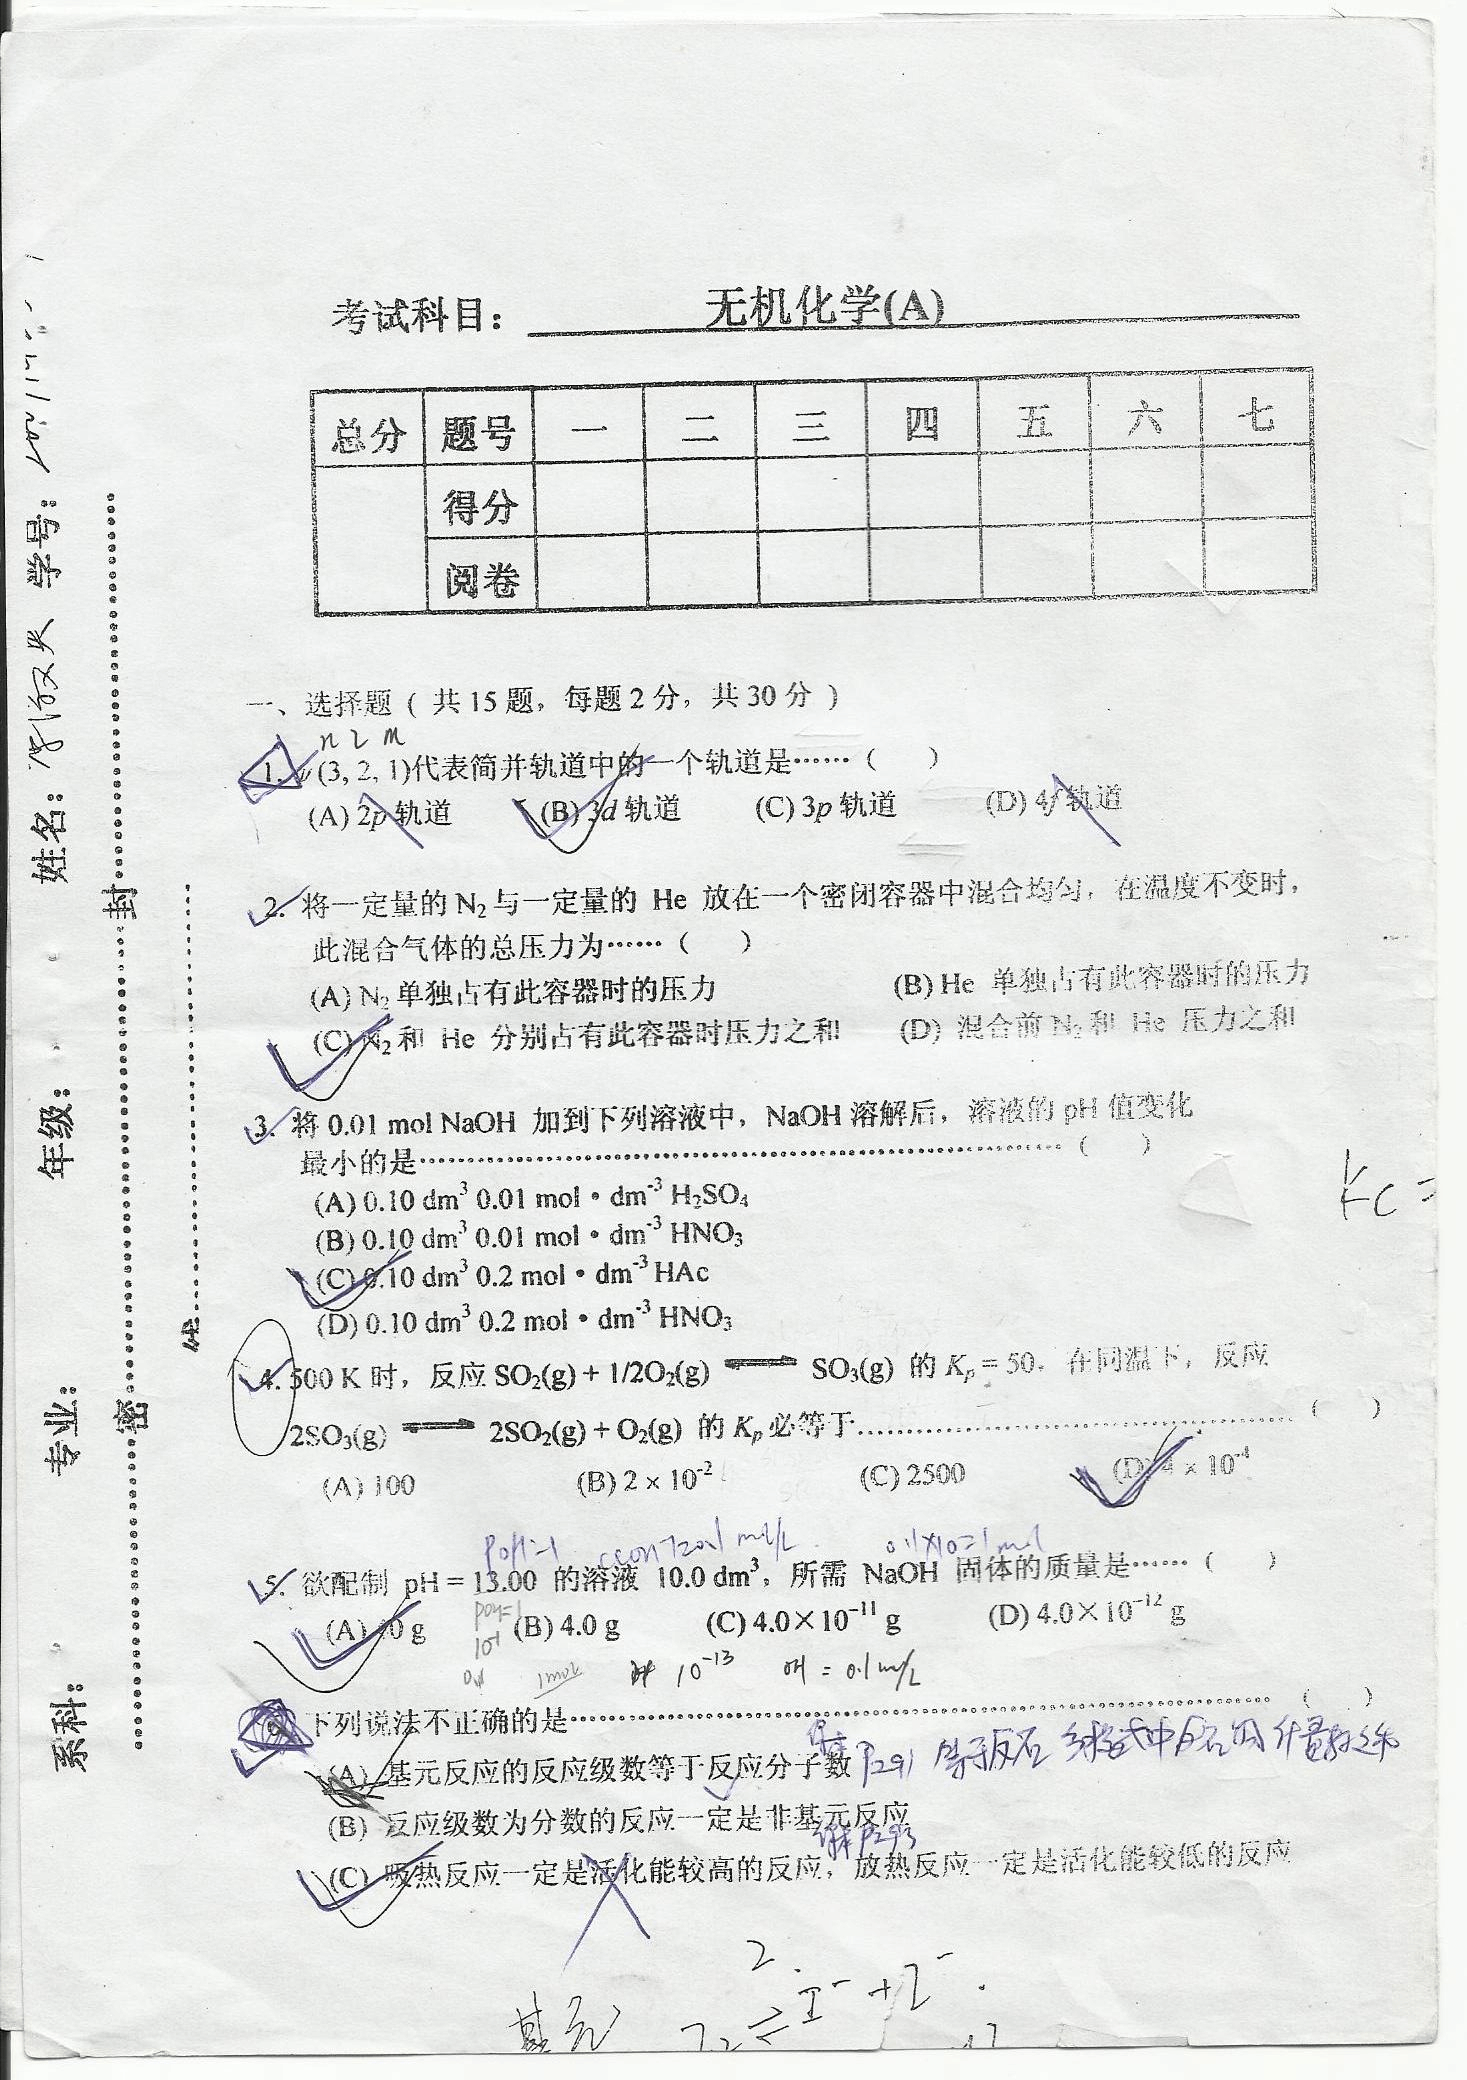 考试科目： 无机化学(A)
总分 题号 一 二 三 四 五 六 七
得分
阅卷
学号：
姓名：
年级：
专业：
系科：
封
密
线
一、选择题 ( 共 15 题，每题 2 分，共 30 分 )
n l m
1. ψ(3, 2, 1)代表简并轨道中的一个轨道是……（ ）
(A) 2p 轨道 (B) 3d 轨道 (C) 3p 轨道 (D) 4f 轨道
2. 将一定量的 N₂ 与一定量的 He 放在一个密闭容器中混合均匀，在温度不变时，
此混合气体的总压力为……（ ）
(A) N₂ 单独占有此容器时的压力 (B) He 单独占有此容器时的压力
(C) N₂ 和 He 分别占有此容器时压力之和 (D) 混合前 N₂ 和 He 压力之和
3. 将 0.01 mol NaOH 加到下列溶液中，NaOH 溶解后，溶液的 pH 值变化
最小的是……（ ）
(A) 0.10 dm³ 0.01 mol·dm⁻³ H₂SO₄
(B) 0.10 dm³ 0.01 mol·dm⁻³ HNO₃
(C) 0.10 dm³ 0.2 mol·dm⁻³ HAc
(D) 0.10 dm³ 0.2 mol·dm⁻³ HNO₃
Kc =
4. 500 K 时，反应 SO₂(g) + 1/2O₂(g) ⇌ SO₃(g) 的 Kp = 50. 在同温下，反应
2SO₃(g) ⇌ 2SO₂(g) + O₂(g) 的 Kp 必等于……（ ）
(A) 100 (B) 2 × 10⁻² (C) 2500 (D) 4 × 10⁻⁴
0.1×10=1mol
5. 欲配制 pH = 13.00 的溶液 10.0 dm³，所需 NaOH 固体的质量是……（ ）
(A) 40 g (B) 4.0 g (C) 4.0×10⁻¹¹ g (D) 4.0×10⁻¹² g
1mol 10⁻¹³ OH = 0.1m/L
下列说法不正确的是……（ ）
(A) 基元反应的反应级数等于反应分子数 P291
(B) 反应级数为分数的反应一定是非基元反应
P293
(C) 吸热反应一定是活化能较高的反应，放热反应一定是活化能较低的反应
2
基元 I₂ ⇌ I⁻ + I⁻